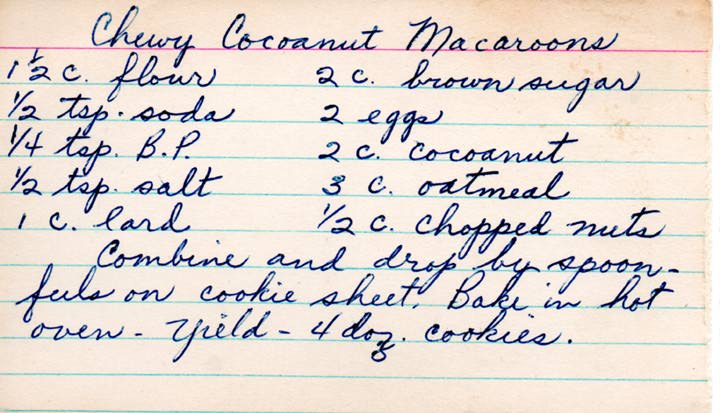 Chewy Cocoanut Macaroons
1 1/2 c. flour 2 c. brown sugar
1/2 tsp. soda 2 eggs
1/4 tsp. B.P. 2 c. cocoanut
1/2 tsp. salt 3 c. oatmeal
1 c. lard 1/2 c. chopped nuts
Combine and drop by spoon-
fuls on cookie sheet. Bake in hot
oven - Yield - 4 doz. cookies.